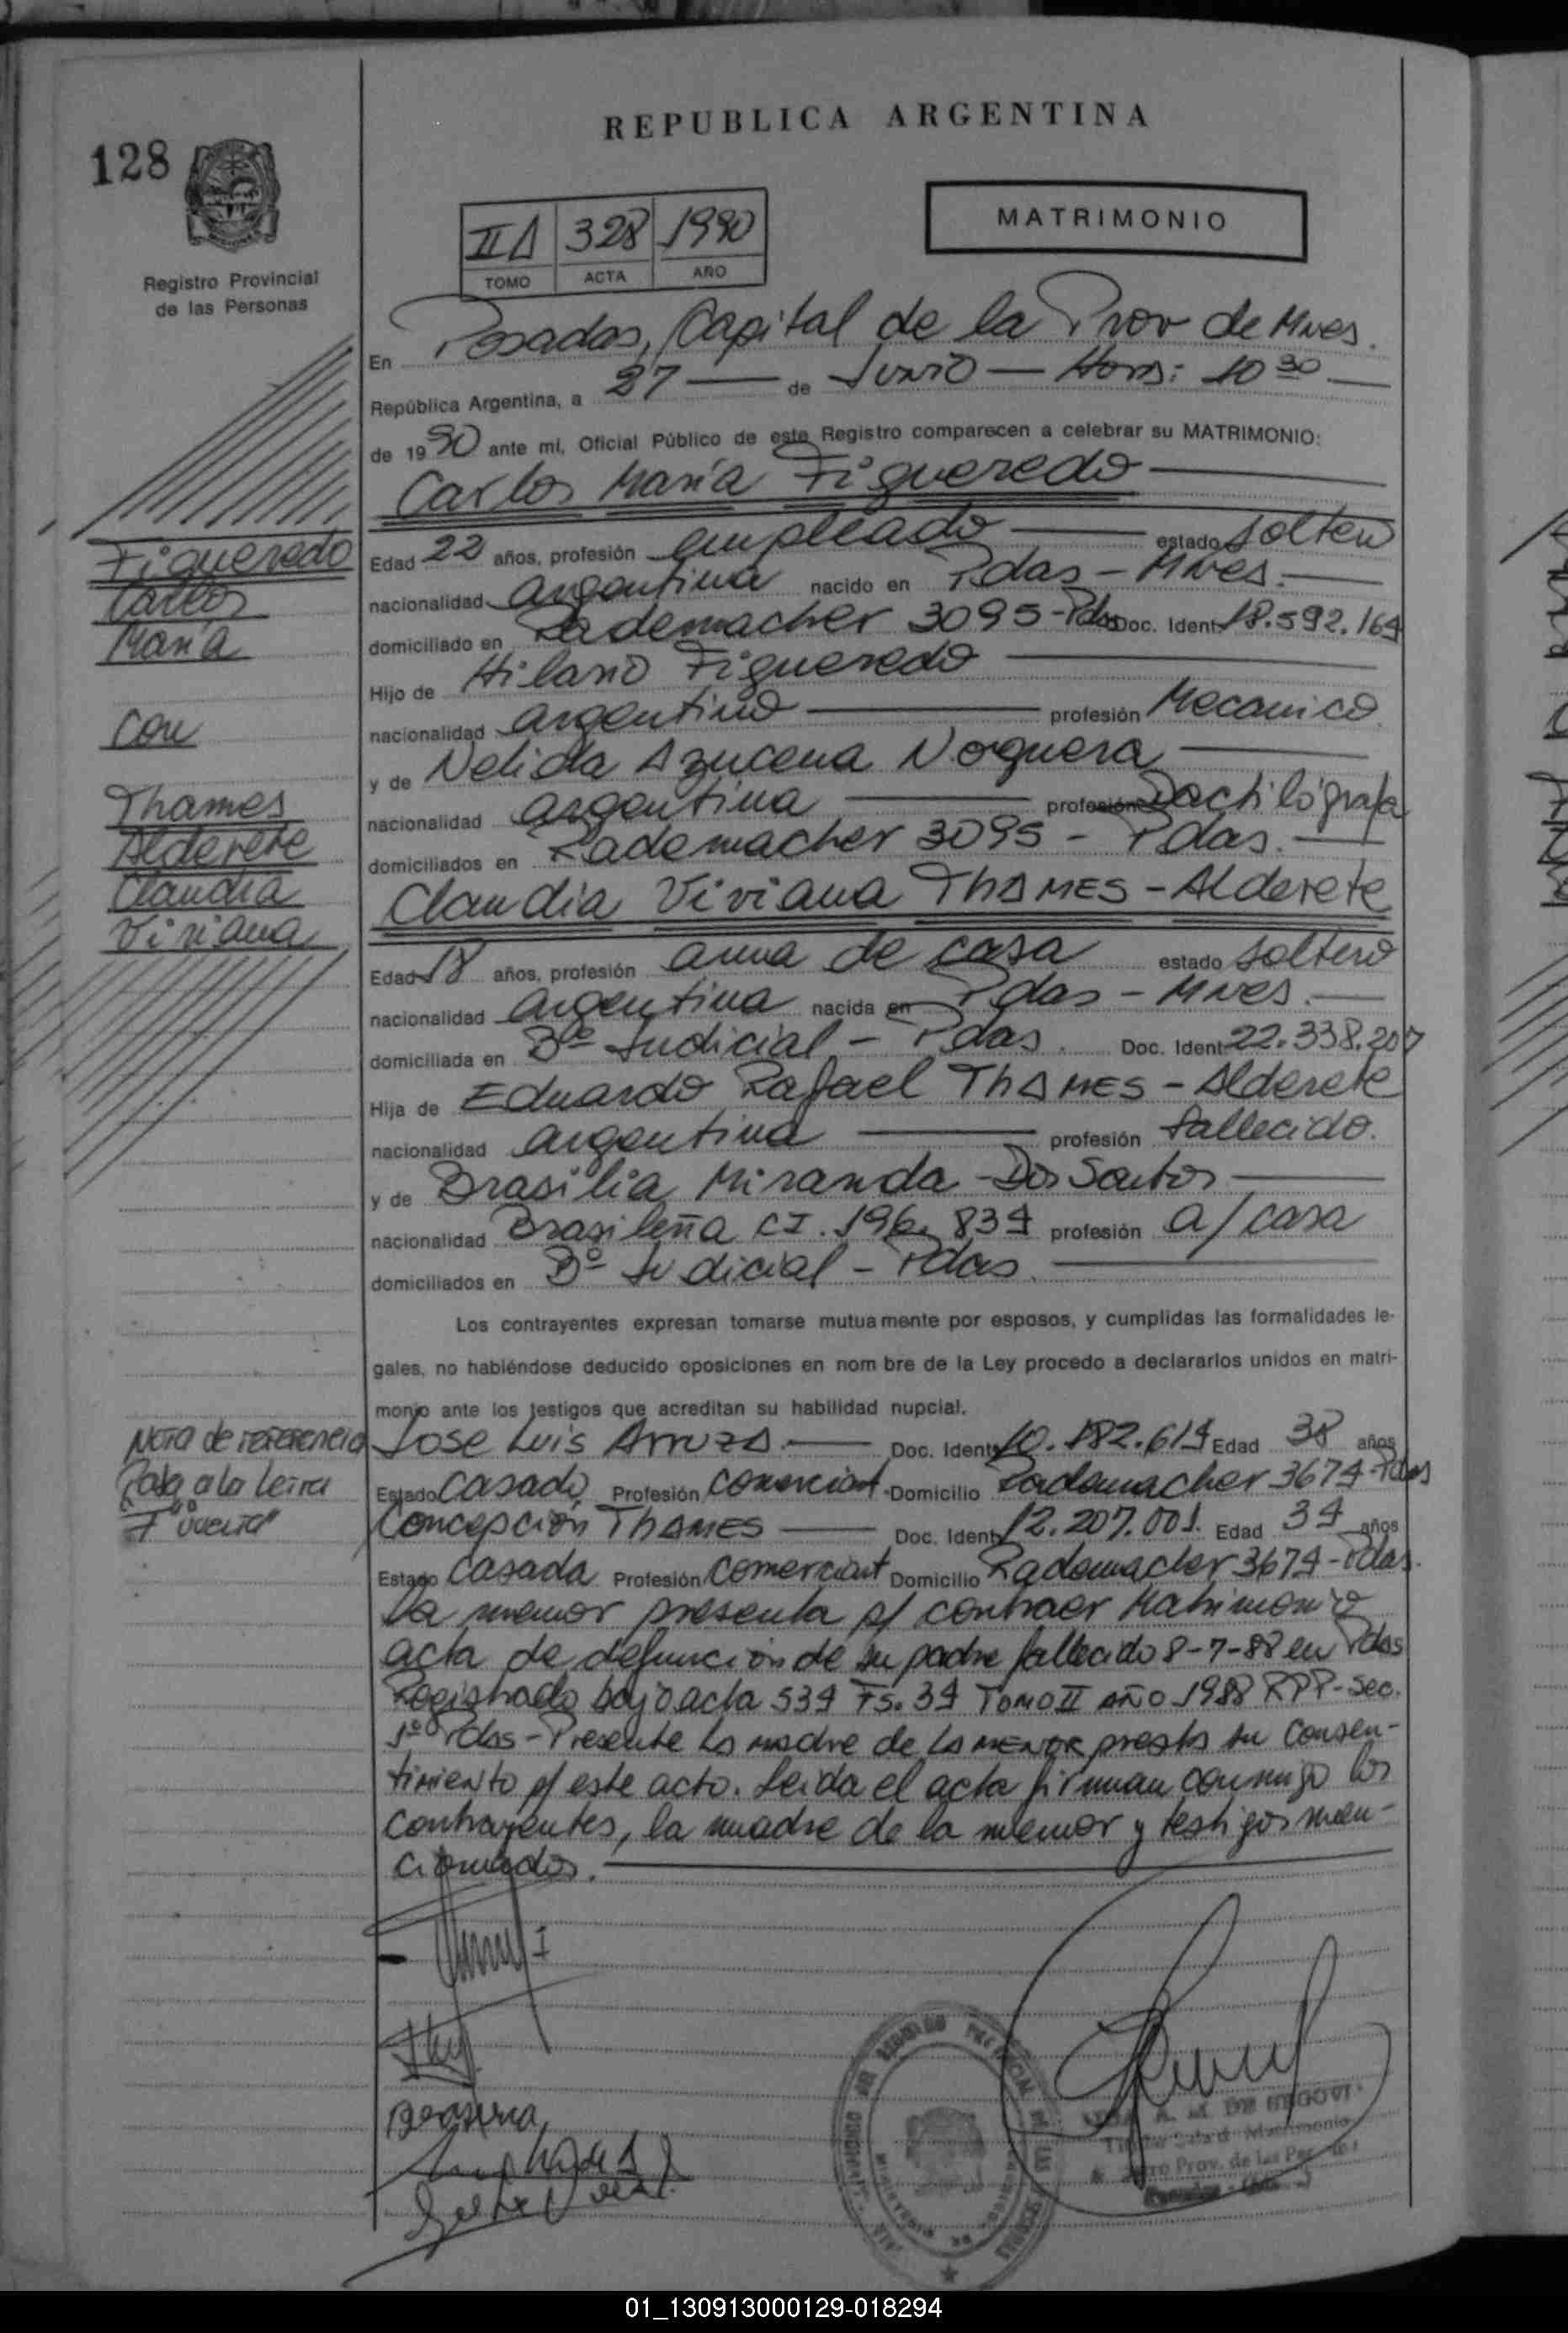 REPUBLICA ARGENTINA
128
MATRIMONIO
IIA 328 1990
TOMO ACTA AÑO
Registro Provincial
de las Personas
En Posadas, Capital de la Prov de Mnes.
República Argentina, a 27 — de Junio — Hora: 10 30 —
de 1990 ante mi, Oficial Público de este Registro comparecen a celebrar su MATRIMONIO:
Carlos María Figueredo
Edad 22 años, profesión empleado estado soltero
nacionalidad argentina nacido en Pdas - Mnes.
domiciliado en Rademacher 3095 - Pdas Doc. Ident. 18.592.164
Hijo de Hilario Figueredo
nacionalidad argentino profesión Mecanico
y de Nelida Azucena Noguera
nacionalidad argentina profesión Dactilógrafa
domiciliados en Rademacher 3095 - Pdas.
Claudia Viviana THAMES - Alderete
Edad 18 años, profesión ama de casa estado soltero
nacionalidad argentina nacida en Pdas - Mnes.
domiciliada en Bº Judicial - Pdas. Doc. Ident. 22.338.207
Hija de Eduardo Rafael THAMES - Alderete
nacionalidad argentina profesión fallecido.
y de Brasilia Miranda Dos Santos
nacionalidad Brasileña CI. 196.834 profesión a/casa
domiciliados en Bº Judicial - Pdas.
Los contrayentes expresan tomarse mutuamente por esposos, y cumplidas las formalidades le-
gales, no habiéndose deducido oposiciones en nom bre de la Ley procedo a declararlos unidos en matri-
monio ante los testigos que acreditan su habilidad nupcial.
Jose Luis Arruza Doc. Ident. 10.182.614 Edad 38 años
Estado Casado Profesión comerciant. Domicilio Rademacher 3674 - Pdas
Concepción THAMES Doc. Ident. 12.207.001. Edad 34 años
Estado Casada Profesión comerciant Domicilio Rademacher 3674 - Pdas.
La menor presenta p/ contraer Matrimonio
acta de defunción de su padre fallecido 8-7-88 en Pdas
Registrado bajo acta 534 Fs. 34 Tomo II año 1988 RPP - Sec.
1º Pdas - Presente la madre de la MENOR presta su consen-
timiento p/ este acto. Leida el acta firman conmigo los
contrayentes, la madre de la menor y testigos men-
cionados.
Figueredo
Carlos
María
con
Thames
Alderete
Claudia
Viviana
Nota de referencia
Pasa a la letra
"F" vuelta
A. M. DE SEGOVI
Matrimonio
Prov. de las Per
01_130913000129-018294